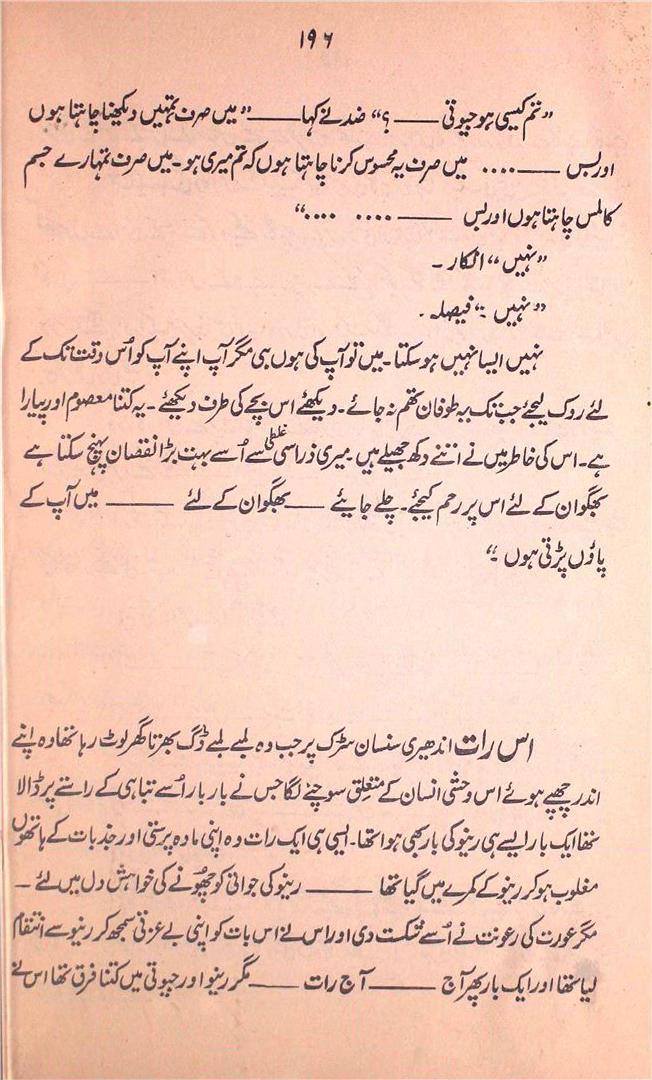 ۱۹۶
”تم کیسی ہو جیوتی ——؟“ ضد نے کہا ——”میں صرف تمہیں دیکھنا چاہتا ہوں
اور بس —— .... میں صرف یہ محسوس کرنا چاہتا ہوں کہ تم میری ہو۔ میں صرف تمہارے جسم
کا لمس چاہتا ہوں اور بس —— .... ....“
”نہیں“ انکار ۔
”نہیں ۔“ فیصلہ ۔
نہیں ایسا نہیں ہو سکتا ۔ میں تو آپ کی ہوں ہی مگر آپ اپنے آپ کو اُس وقت تک کے
لئے روک لیجئے جب تک یہ طوفان تھم نہ جائے ۔ دیکھئے اس بچے کی طرف دیکھئے ۔ یہ کتنا معصوم اور پیارا
ہے ۔ اس کی خاطر میں نے اتنے دکھ جھیلے ہیں ۔ میری ذرا سی غلطی سے اُسے بہت بڑا نقصان پہنچ سکتا ہے
بھگوان کے لئے اس پر رحم کیجئے ۔ چلے جایئے —— بھگوان کے لئے —— میں آپ کے
پاؤں پڑتی ہوں ۔“
اس رات اندھیری سنسان سڑک پر جب وہ لمبے لمبے ڈگ بھرتا گھر لوٹ رہا تھا وہ اپنے
اندر چھپے ہوئے اس وحشی انسان کے متعلق سوچنے لگا جس نے بار بار اُسے تباہی کے راستے پر ڈالا
تھا ایک بار ایسے ہی رینو کی بار بھی ہوا تھا ۔ ایسی ہی ایک رات وہ اپنی مادہ پرستی اور جذبات کے ہاتھوں
مغلوب ہو کر رینو کے کمرے میں گیا تھا —— رینو کی جوانی کو چھونے کی خواہش دل میں لئے ۔
مگر عورت کی رعونت نے اُسے شکست دی اور اس نے اس بات کو اپنی بے عزتی سمجھ کر رینو سے انتقام
لیا تھا اور ایک بار پھر آج —— آج رات —— مگر رینو اور جیوتی میں کتنا فرق تھا اس نے